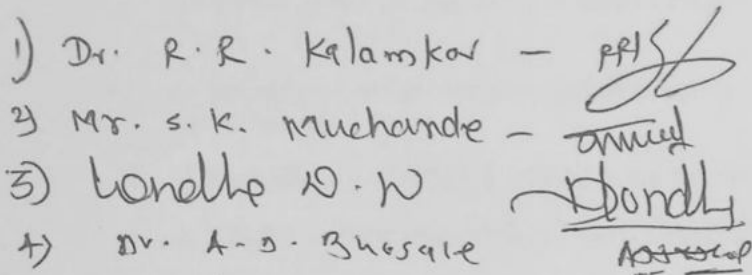 1) Dr. R. R. Kalamkar -
2) Mr. S. K. Muchande -
3) Londhe D. W
4) Dr. A. D. Bhosale